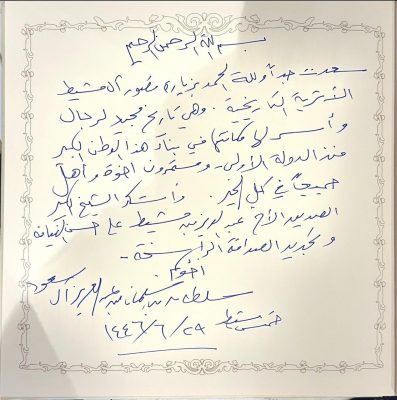 بسم الله الرحمن الرحيم
سعدت جداً ولله الحمد بزيارة قصور آل مشيط
الأثرية التاريخية. وهي تاريخ مجيد لرجال
وأسر لها مكانتها في بناء هذا الوطن الكبير
منذ الدولة الأولى - ومستمرون اخوة وأهل
جميعاً في كل الخير. فأشكر الشيخ الكبير
الصديق الأخ عبدالعزيز بن مشيط على حسن الضيافة
وتجديد الصداقة الراسخة -
اخوكم
سلطان بن سلمان بن عبدالعزيز آل سعود
خميس مشيط
١٤٤٦/٦/٢٩